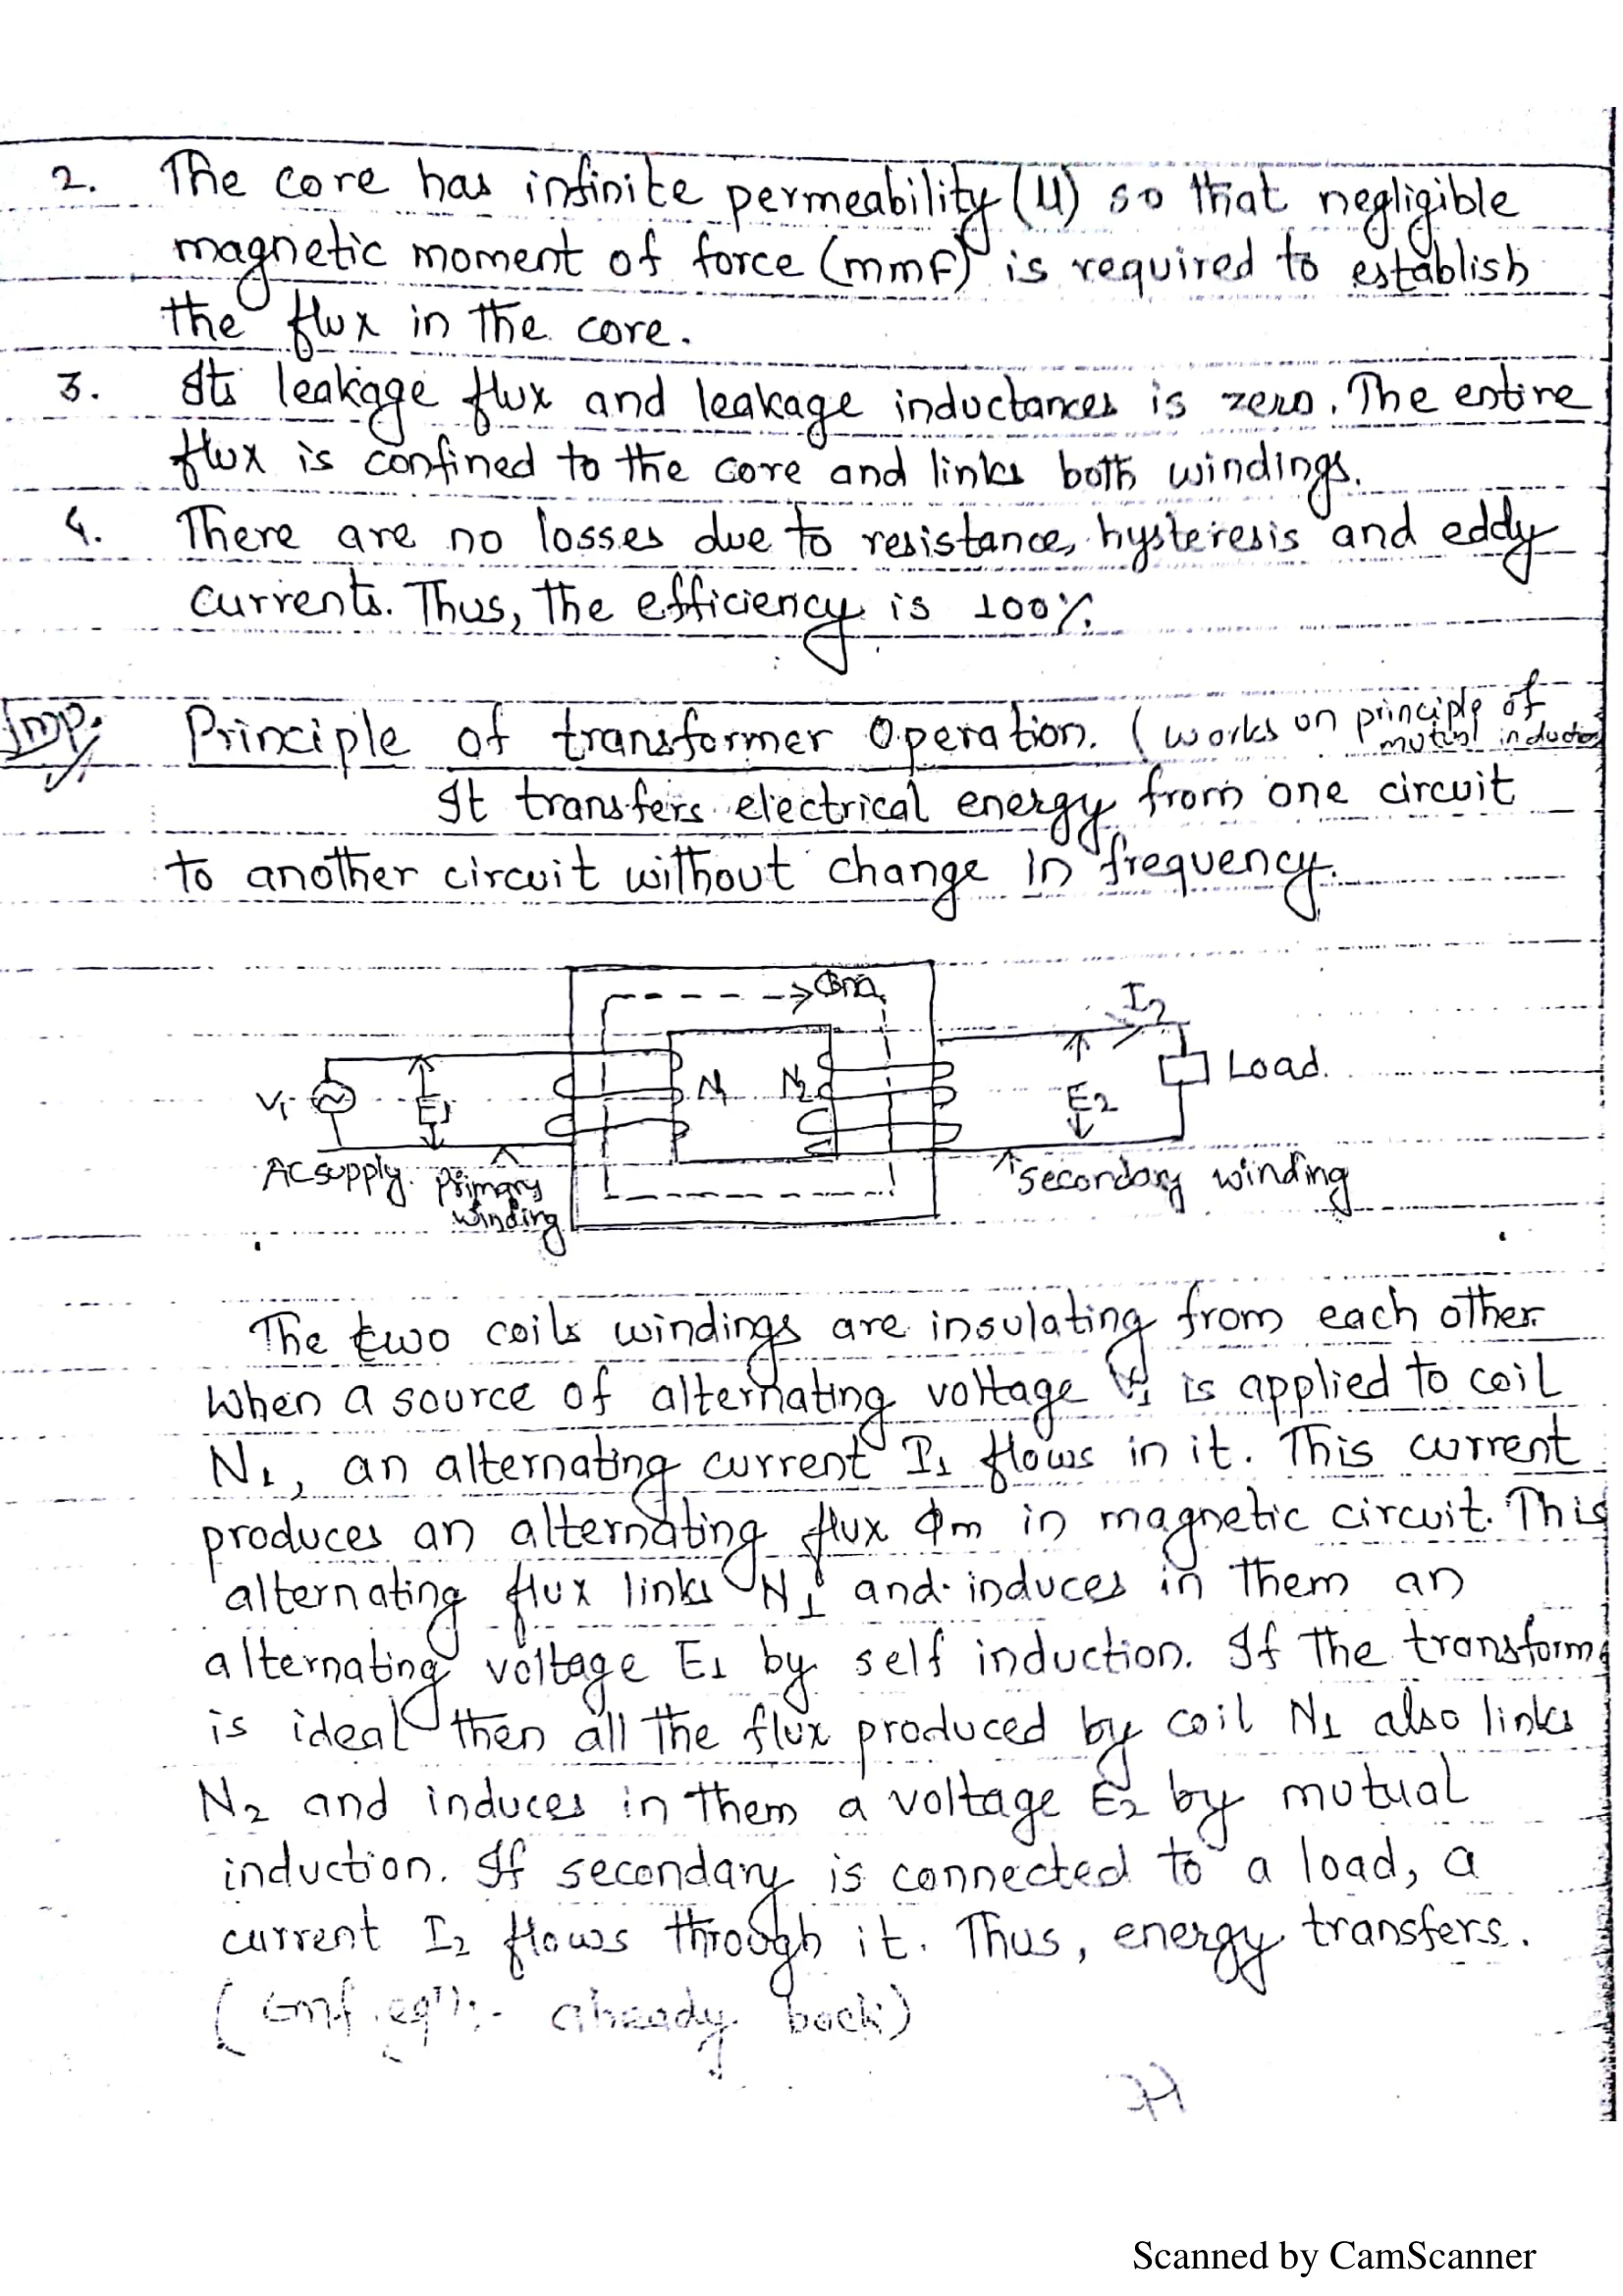 2. The core has infinite permeability (μ) so that negligible
magnetic moment of force (mmf) is required to establish
the flux in the core.
3. Its leakage flux and leakage inductances is zero. The entire
flux is confined to the core and links both windings.
4. There are no losses due to resistance, hysteresis and eddy
currents. Thus, the efficiency is 100%.
Imp. Principle of transformer Operation. (works on principle of
mutual induction
It transfers electrical energy from one circuit
to another circuit without change in frequency.
Φm
I2
V1 E1 N1 N2 E2 Load.
AC supply. Primary
winding
Secondary winding
The two coils windings are insulating from each other.
When a source of alternating voltage V1 is applied to coil
N1, an alternating current I1 flows in it. This current
produces an alternating flux Φm in magnetic circuit. This
alternating flux links N1 and induces in them an
alternating voltage E1 by self induction. If the transform
is ideal then all the flux produced by coil N1 also links
N2 and induces in them a voltage E2 by mutual
induction. If secondary is connected to a load, a
current I2 flows through it. Thus, energy transfers.
(Emf eqn:- already back)
Scanned by CamScanner